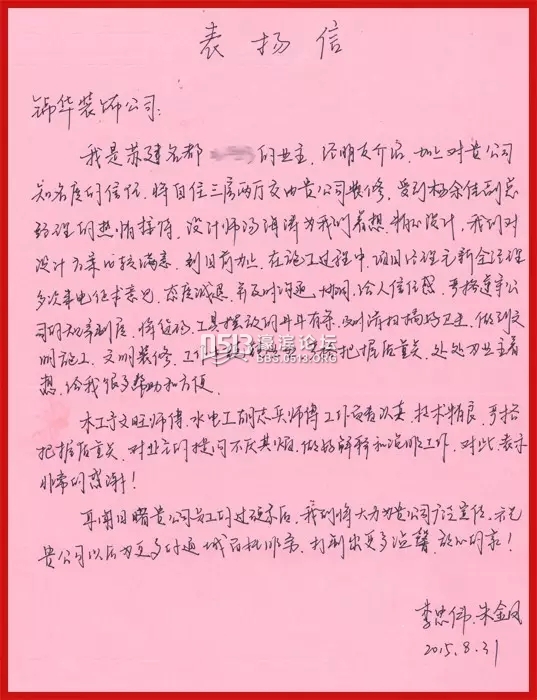 表扬信
锦华装饰公司:
我是苏建名都 的业主,经朋友介绍,加上对贵公司
知名度的信任,将自住三房两厅交由贵公司装修,受到杨余佳副总
经理的热情接待,设计师汤海涛为我们着想,精心设计,我们对
设计方案比较满意,到目前为止,在施工过程中,项目经理 全经理
多次来电征求意见,态度诚恳,并及时沟通、协调,给人信任感,严格遵守公
司的规章制度,将 、工具摆放的井井有条,及时清扫现场卫生,做到文
明施工,文明装修,工 把握质量关,处处为业主着
想,给我很多帮助和方便。
木工 文旺师傅,水电工胡志兵师傅工作负责认真,技术精良,严格
把握质量关,对业主的提问不厌其烦,做好解释和说明工作,对此表示
非常的感谢!
耳闻目睹贵公司员工的过硬素质,我们将大力为贵公司广泛宣传,
贵公司以后为更多的通城百姓 ,打制出更多温馨,放心的家!
李忠伟、朱金凤
2015.8.31
0513濠滨论坛
BBS.0513.ORG